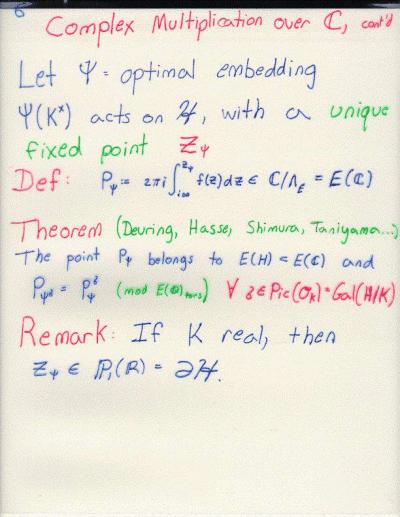 6
Complex Multiplication over ℂ, cont'd
Let Ψ = optimal embedding
Ψ(K^×) acts on ℋ, with a unique
fixed point z_Ψ
Def: P_Ψ := 2πi ∫_{i∞}^{z_Ψ} f(z)dz ∈ ℂ/Λ_E = E(ℂ)
Theorem (Deuring, Hasse, Shimura, Taniyama...)
The point P_Ψ belongs to E(H) ⊂ E(ℂ) and
(mod E(ℚ)_tors) ∀ ∈ Pic(O_K) = Gal(H/K)
Remark: If K real, then
z_Ψ ∈ ℙ₁(ℝ) = ∂ℋ.